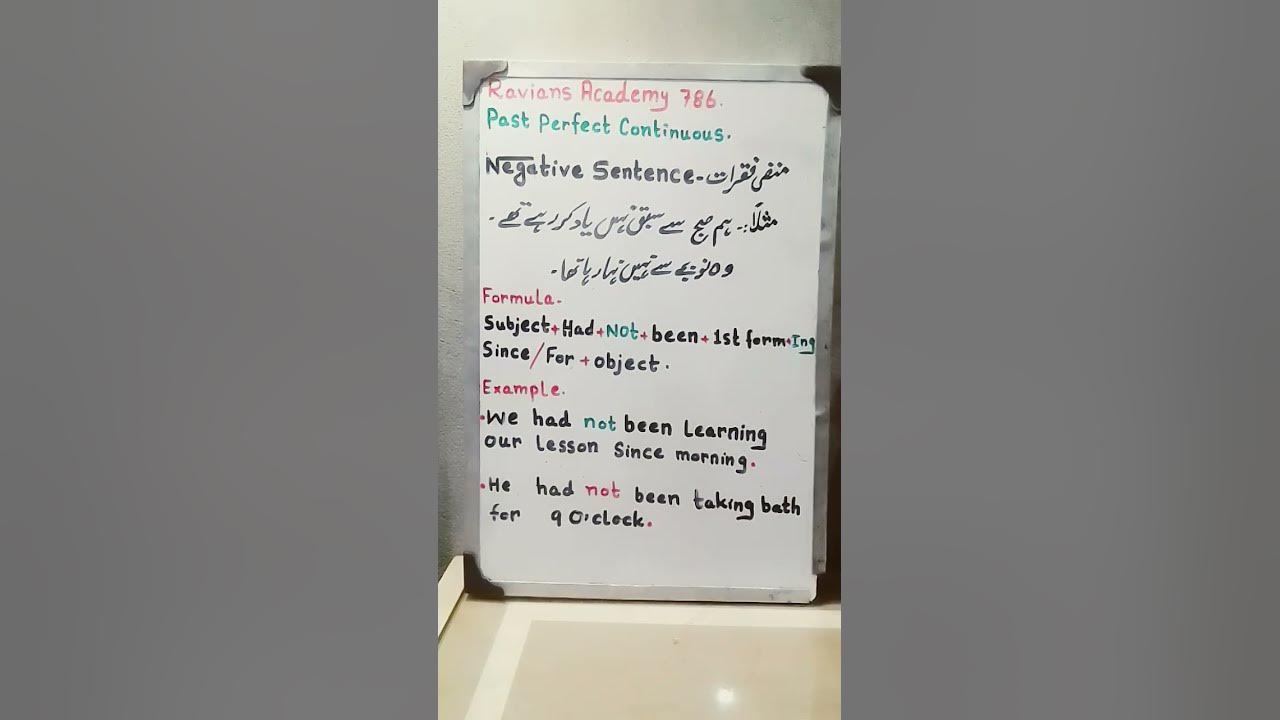 Ravians Academy 786.
Past Perfect Continuous.
Negative Sentence-منفی فقرات
مثلاً:- ہم صبح سے سبق نہیں یاد کر رہے تھے۔
وہ نو بجے سے نہیں نہا رہا تھا۔
Formula.
Subject+Had+Not+been+1st form+Ing
Since/For+object.
Example.
•We had not been Learning
our Lesson Since morning.
•He had not been taking bath
for 9 O'clock.